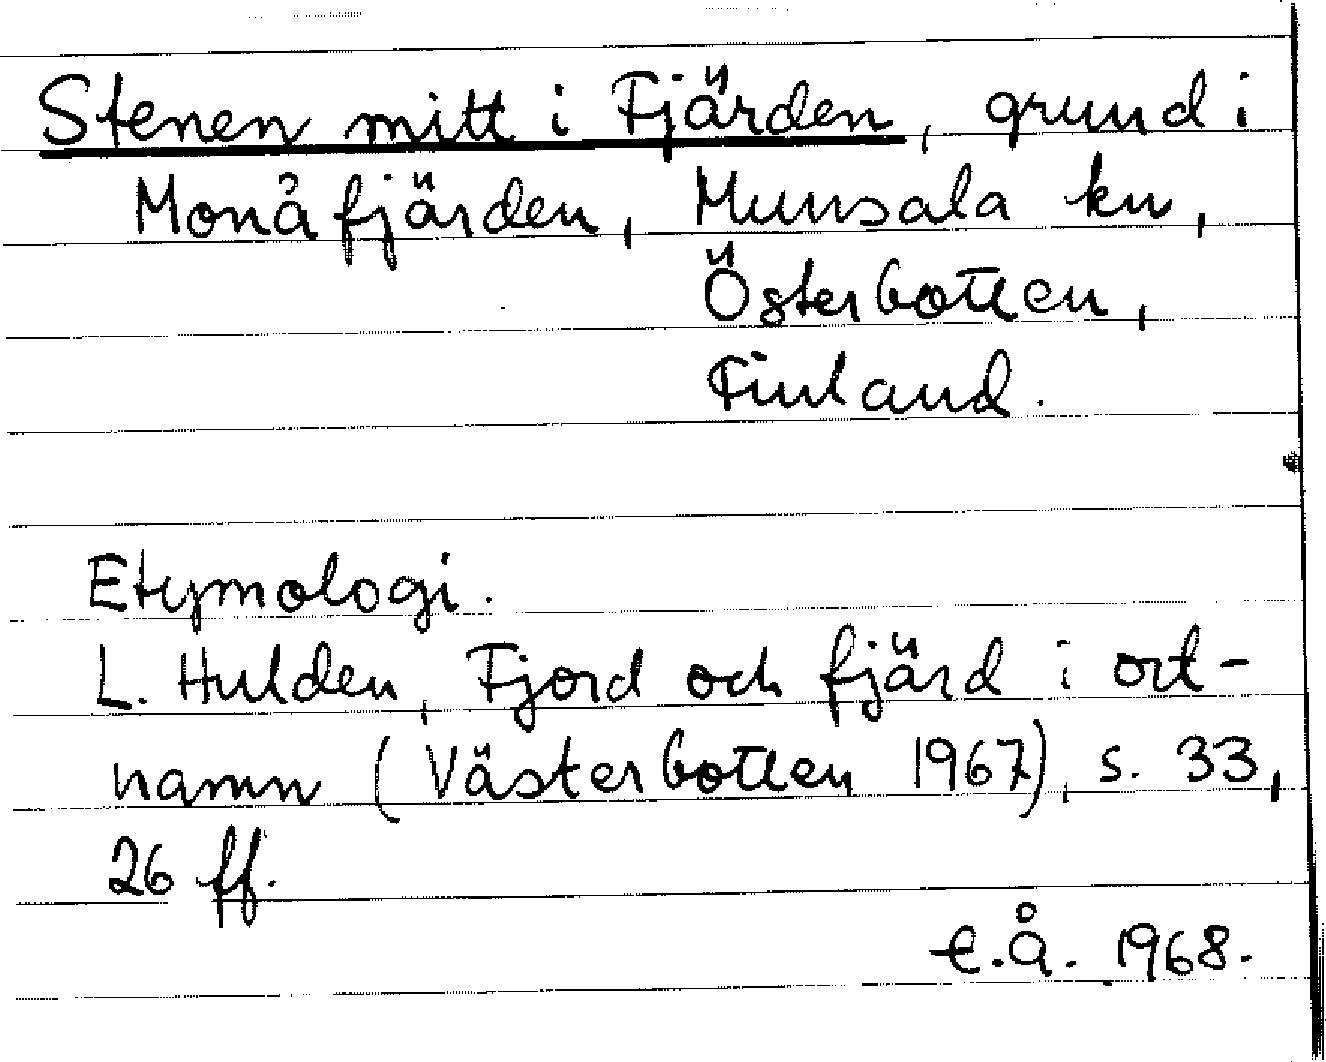 Stenen mitt i Fjärden, grund i
Monåfjärden, Munsala kn,
Österbotten,
Finland.
Etymologi.
L. Hulden, Fjord och fjärd i ort-
namn (Västerbotten 1967), s. 33,
26 ff.
E.Å. 1968.